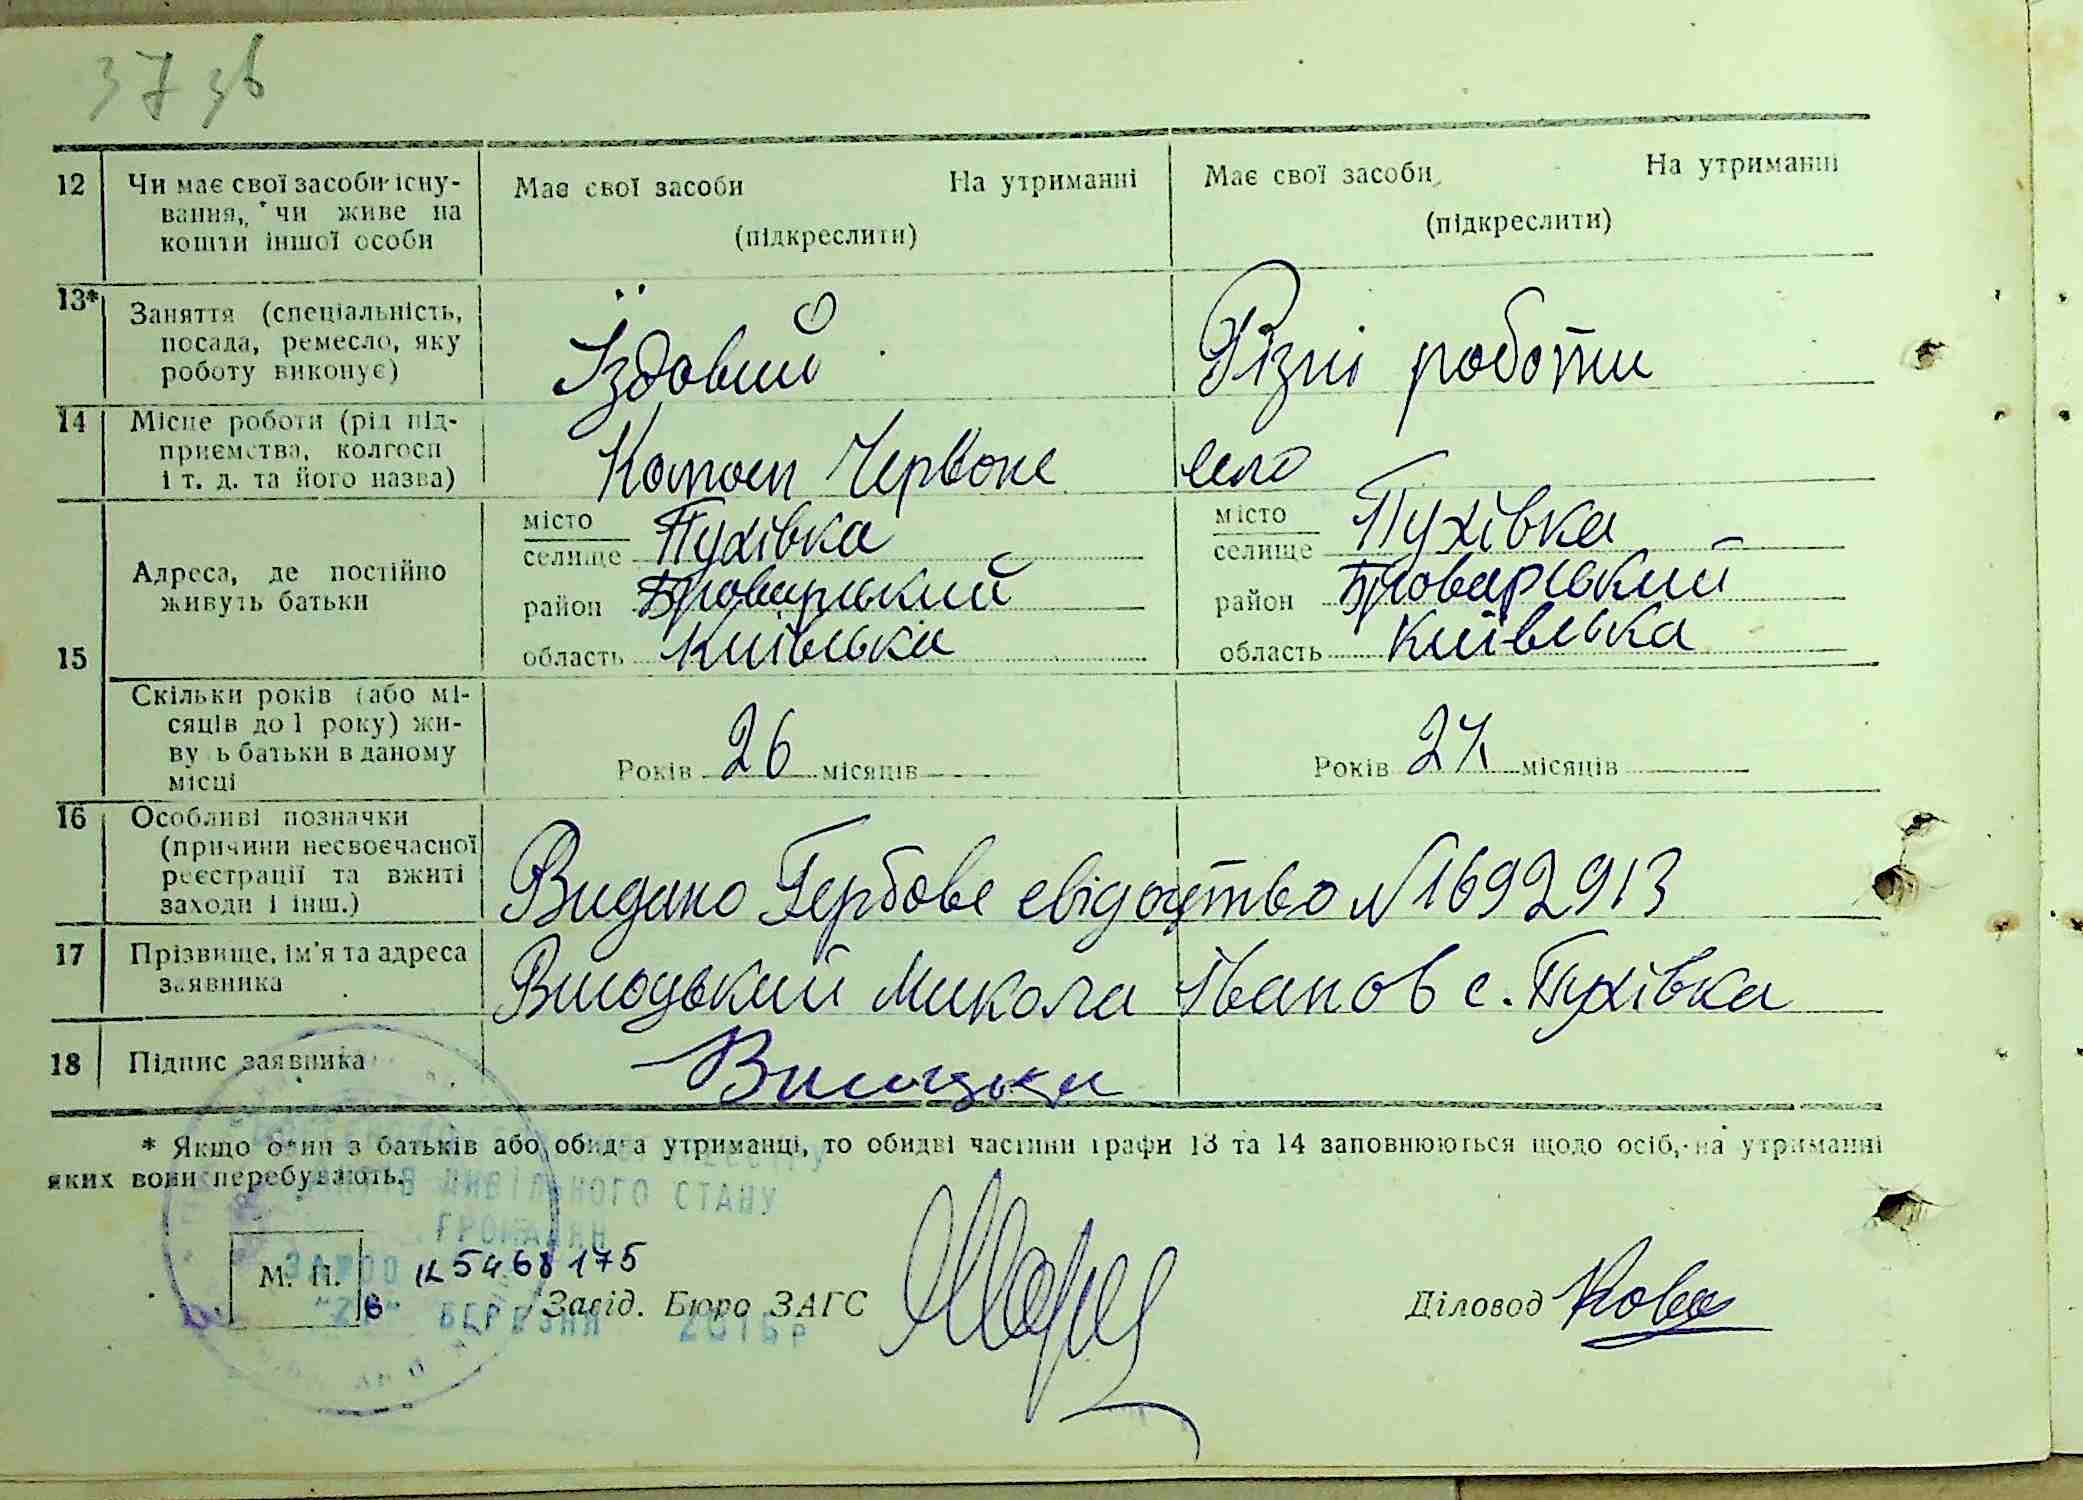 37 зв
12 Чи має свої засоби існу- Має свої засоби На утриманні Має свої засоби На утриманні
вання, чи живе на
кошти іншої особи (підкреслити) (підкреслити)
13* Заняття (спеціальність,
посада, ремесло, яку Їздовий Різні роботи
роботу виконує)
14 Місце роботи (рід під-
приємства, колгосп Червоне село
і т. д. та його назва)
місто Пухівка місто Пухівка
селище селище
Адреса, де постійно
живуть батьки район Броварський район Броварський
15 область Київська область Київська
Скільки років (або мі-
сяців до 1 року) жи-
вуть батьки в даному Років 26 місяців Років 24 місяців
місці
16 Особливі позначки
(причини несвоєчасної
реєстрації та вжиті Видано Гербове свідоцтво №1692913
заходи і інш.)
17 Прізвище, ім'я та адреса Висоцький Микола Іванов с. Пухівка
заявника
18 Підпис заявника
* Якщо один з батьків або обидва утриманці, то обидві частини графи 13 та 14 заповнюються щодо осіб, на утриманні
яких вони перебувають.
ЦИВІЛЬНОГО СТАНУ
ГРОМАДЯН
М. П. 5468175
Завід. Бюро ЗАГС Діловод
БЕРЕЗНЯ 2016 р